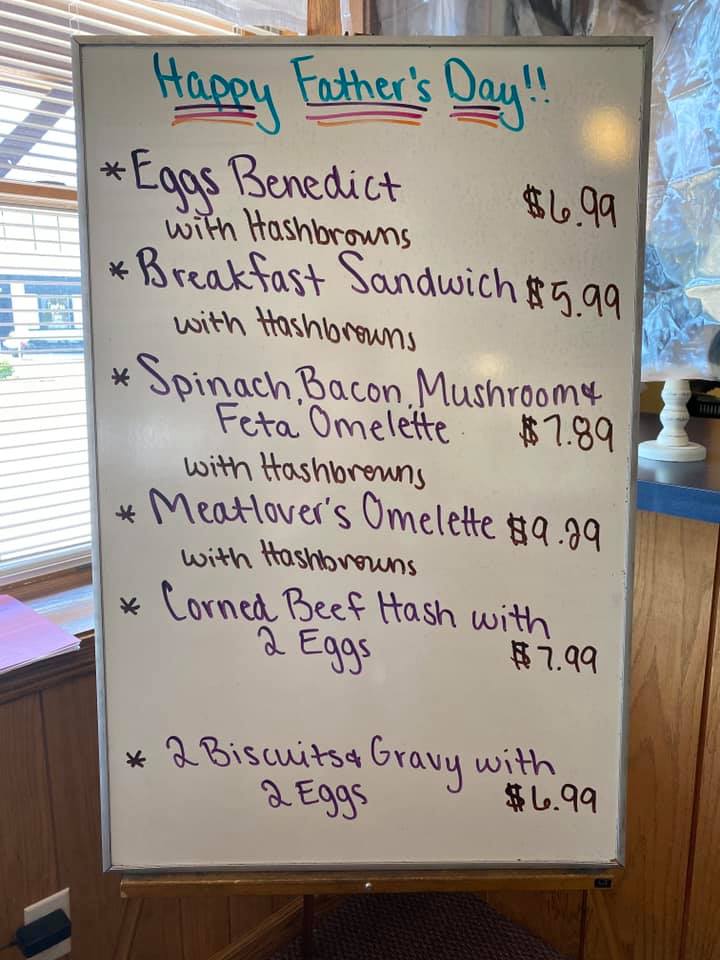 Happy Father's Day!!
* Eggs Benedict $6.99
with Hashbrowns
* Breakfast Sandwich $5.99
with Hashbrowns
* Spinach, Bacon, Mushroom &
Feta Omelette $7.89
with Hashbrowns
* Meatlover's Omelette $9.29
with Hashbrowns
* Corned Beef Hash with
2 Eggs $7.99
* 2 Biscuits & Gravy with
2 Eggs $6.99